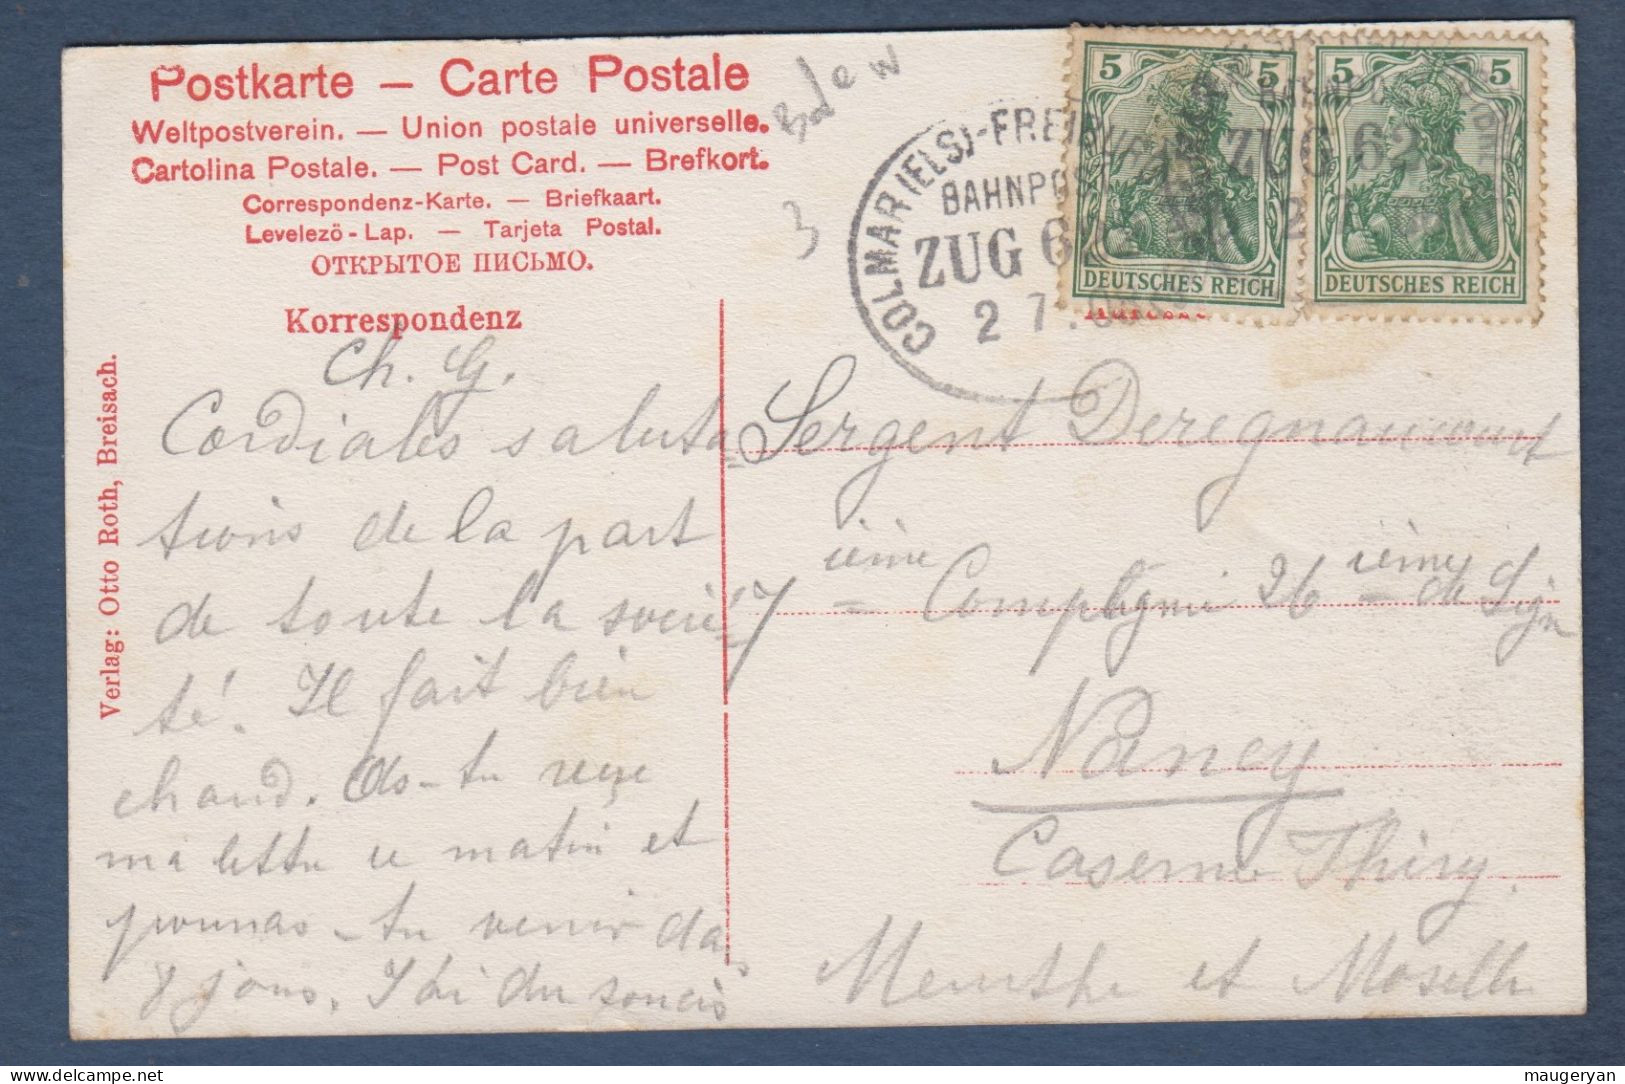 Postkarte — Carte Postale
Weltpostverein. — Union postale universelle.
Cartolina Postale. — Post Card. — Brefkort.
Correspondenz-Karte. — Briefkaart.
Levelező-Lap. — Tarjeta Postal.
ОТКРЫТОЕ ПИСЬМО.
3
Korrespondenz
Verlag: Otto Roth, Breisach.
Ch. G.
Cordiales saluta=
tions de la part
de toute la socié=
té. Il fait bien
chaud. As-tu reçu
ma lettre ce matin et
pourras-tu venir da
8 jours. J'ai du soucis
COLMAR (ELS)-FREI
BAHNPOST
ZUG 6
2 7.
ZUG 62
5 5
DEUTSCHES REICH
5 5
DEUTSCHES REICH
Adresse
Sergent Deregnaucourt
7 ième = Compagnie 26 ième = de Lign
Nancy
Caserne Thiry.
Meurthe et Moselle
maugeryan